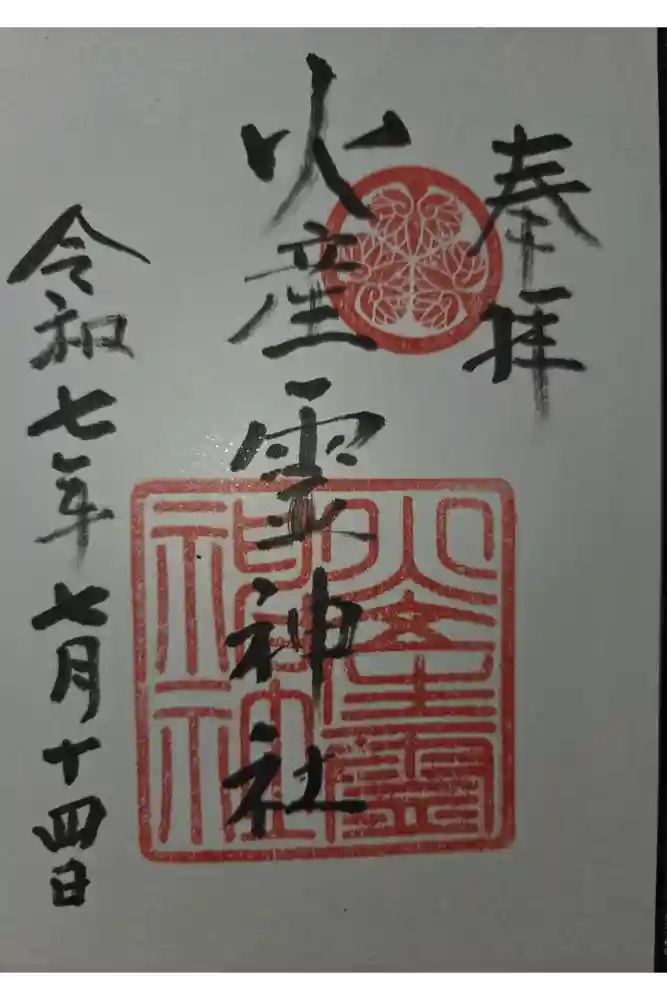 奉拝
火産霊神社
令和七年七月十四日
火産霊
神社